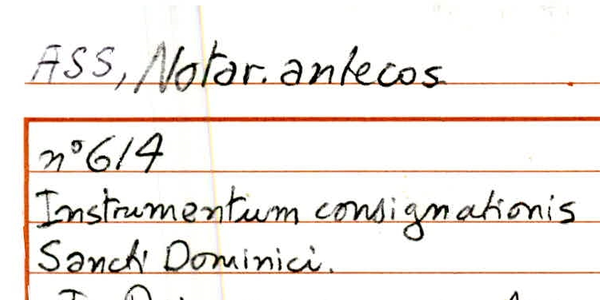 ASS, Notar. antecos
n° 614
Instrumentum consignationis
Sancti Dominici.